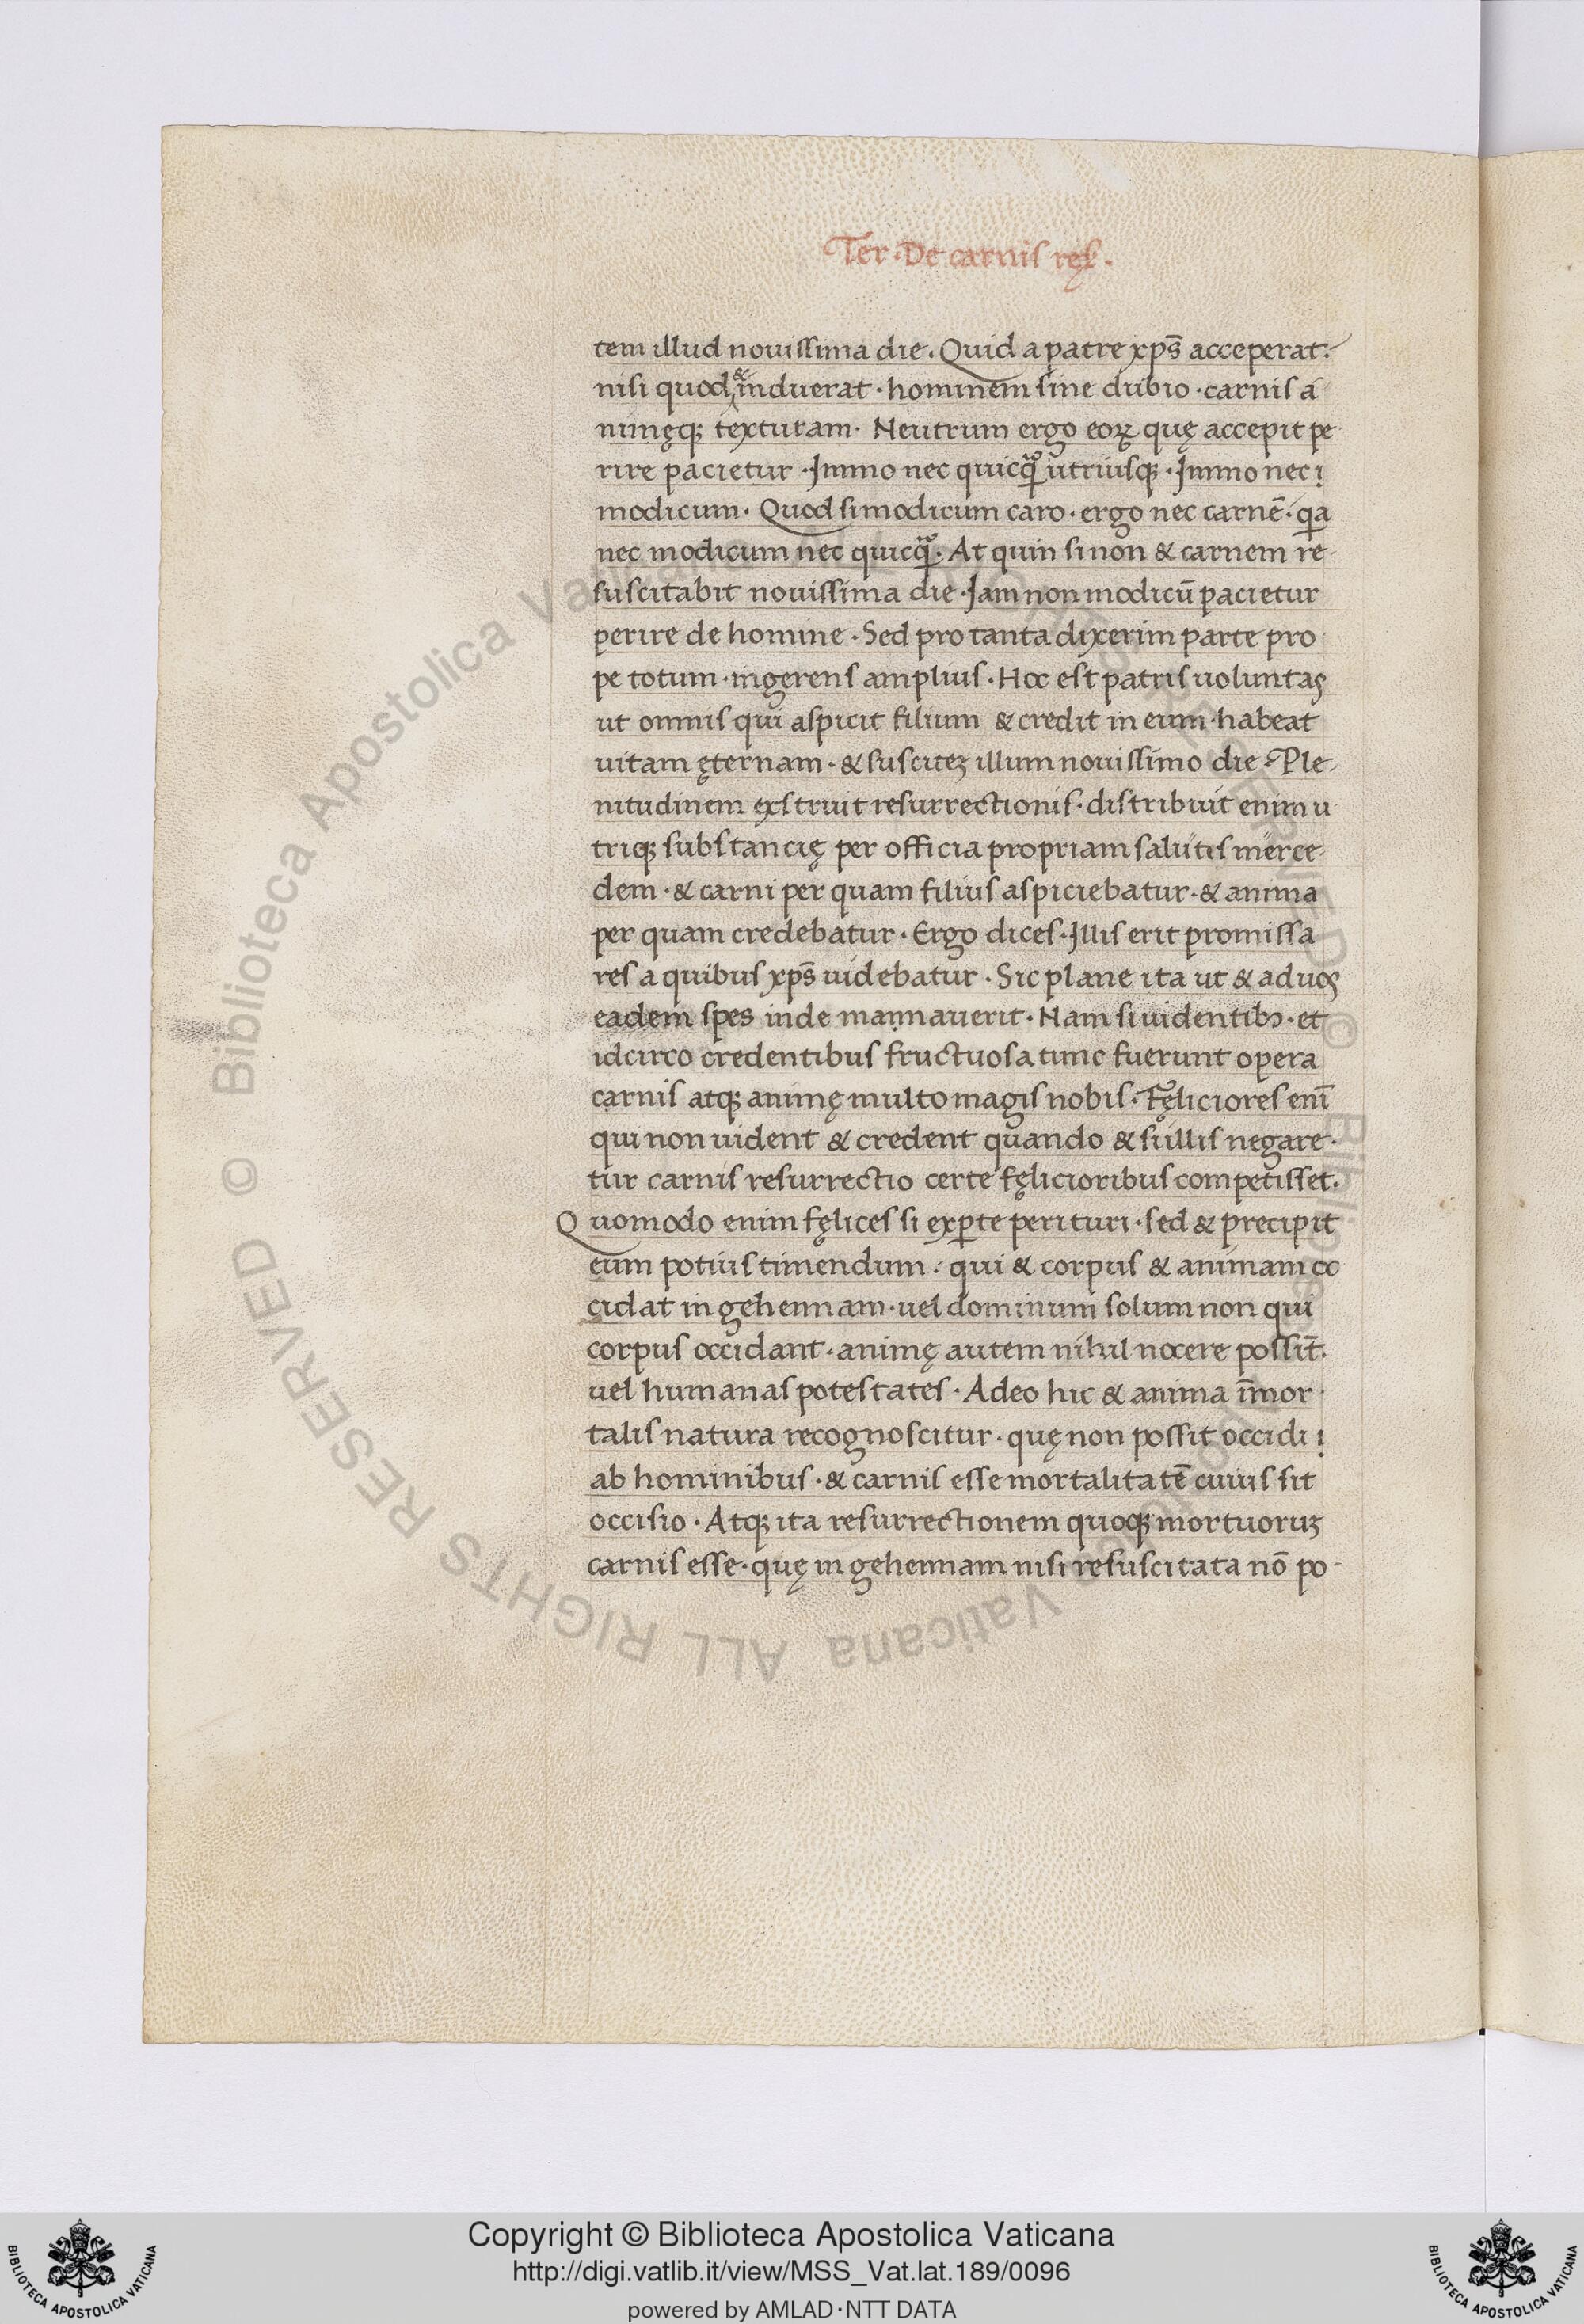 Ter · De carnis reꝶ ·
tem illud nouissima die . Quid a patre xp̄s acceperat ·
nisi quod & induerat · hominem sine dubio · carnis a
nimęqꝫ texturam · Neutrum ergo eoꝝ quę accepit pe
rire pacietur · Immo nec quicqͣ utriusqꝫ · Immo nec i
modicum · Quod si modicum caro · ergo nec carnē · qa
nec modicum nec quicqͣ · At quin si non & carnem re
suscitabit nouissima die · Iam non modicū pacietur
perire de homine · Sed pro tanta dixerim parte pro
pe totum · ingerens amplius · Hoc est patris uoluntas
ut omnis qui aspicit filium & credit in eum · habeat
uitam ęternam · & susciteꝫ illum nouissimo die · Ple
nitudinem exstruit resurrectionis · distribuit enim u
triqꝫ substancię per officia propriam salutis merce
dem · & carni per quam filius aspiciebatur · & anima
per quam credebatur · Ergo dices · Illis erit promissa
res a quibus xp̄s uidebatur · Sic plane ita ut & ad uos
eadem spes inde mannauerit · Nam si uidentibꝫ · et
idcirco credentibus fructuosa tunc fuerunt opera
carnis atqꝫ animę multo magis nobis · Fęliciores enī
qui non uident & credent quando & si illis negare
tur carnis resurrectio certe fęlicioribus competisset ·
Quomodo enim fęlices si ex ꝑte perituri · sed & precipit
eum potius timendum · qui & corpus & animam oc
cidat in gehennam · uel dominum solum non qui
corpus occidant · animę autem nihil nocere possīt ·
uel humanas potestates · Adeo hic & anima īmor
talis natura recognoscitur · quę non possit occidi i
ab hominibus · & carnis esse mortalitatē cuius sit
occisio · Atqꝫ ita resurrectionem quoqꝫ mortuoruꝫ
carnis esse · quę in gehennam nisi resuscitata nō po
Copyright © Biblioteca Apostolica Vaticana
http://digi.vatlib.it/view/MSS_Vat.lat.189/0096
powered by AMLAD·NTT DATA
© Biblioteca Apostolica Vaticana ALL RIGHTS RESERVED
BIBLIOTECA APOSTOLICA VATICANA
BIBLIOTECA APOSTOLICA VATICANA